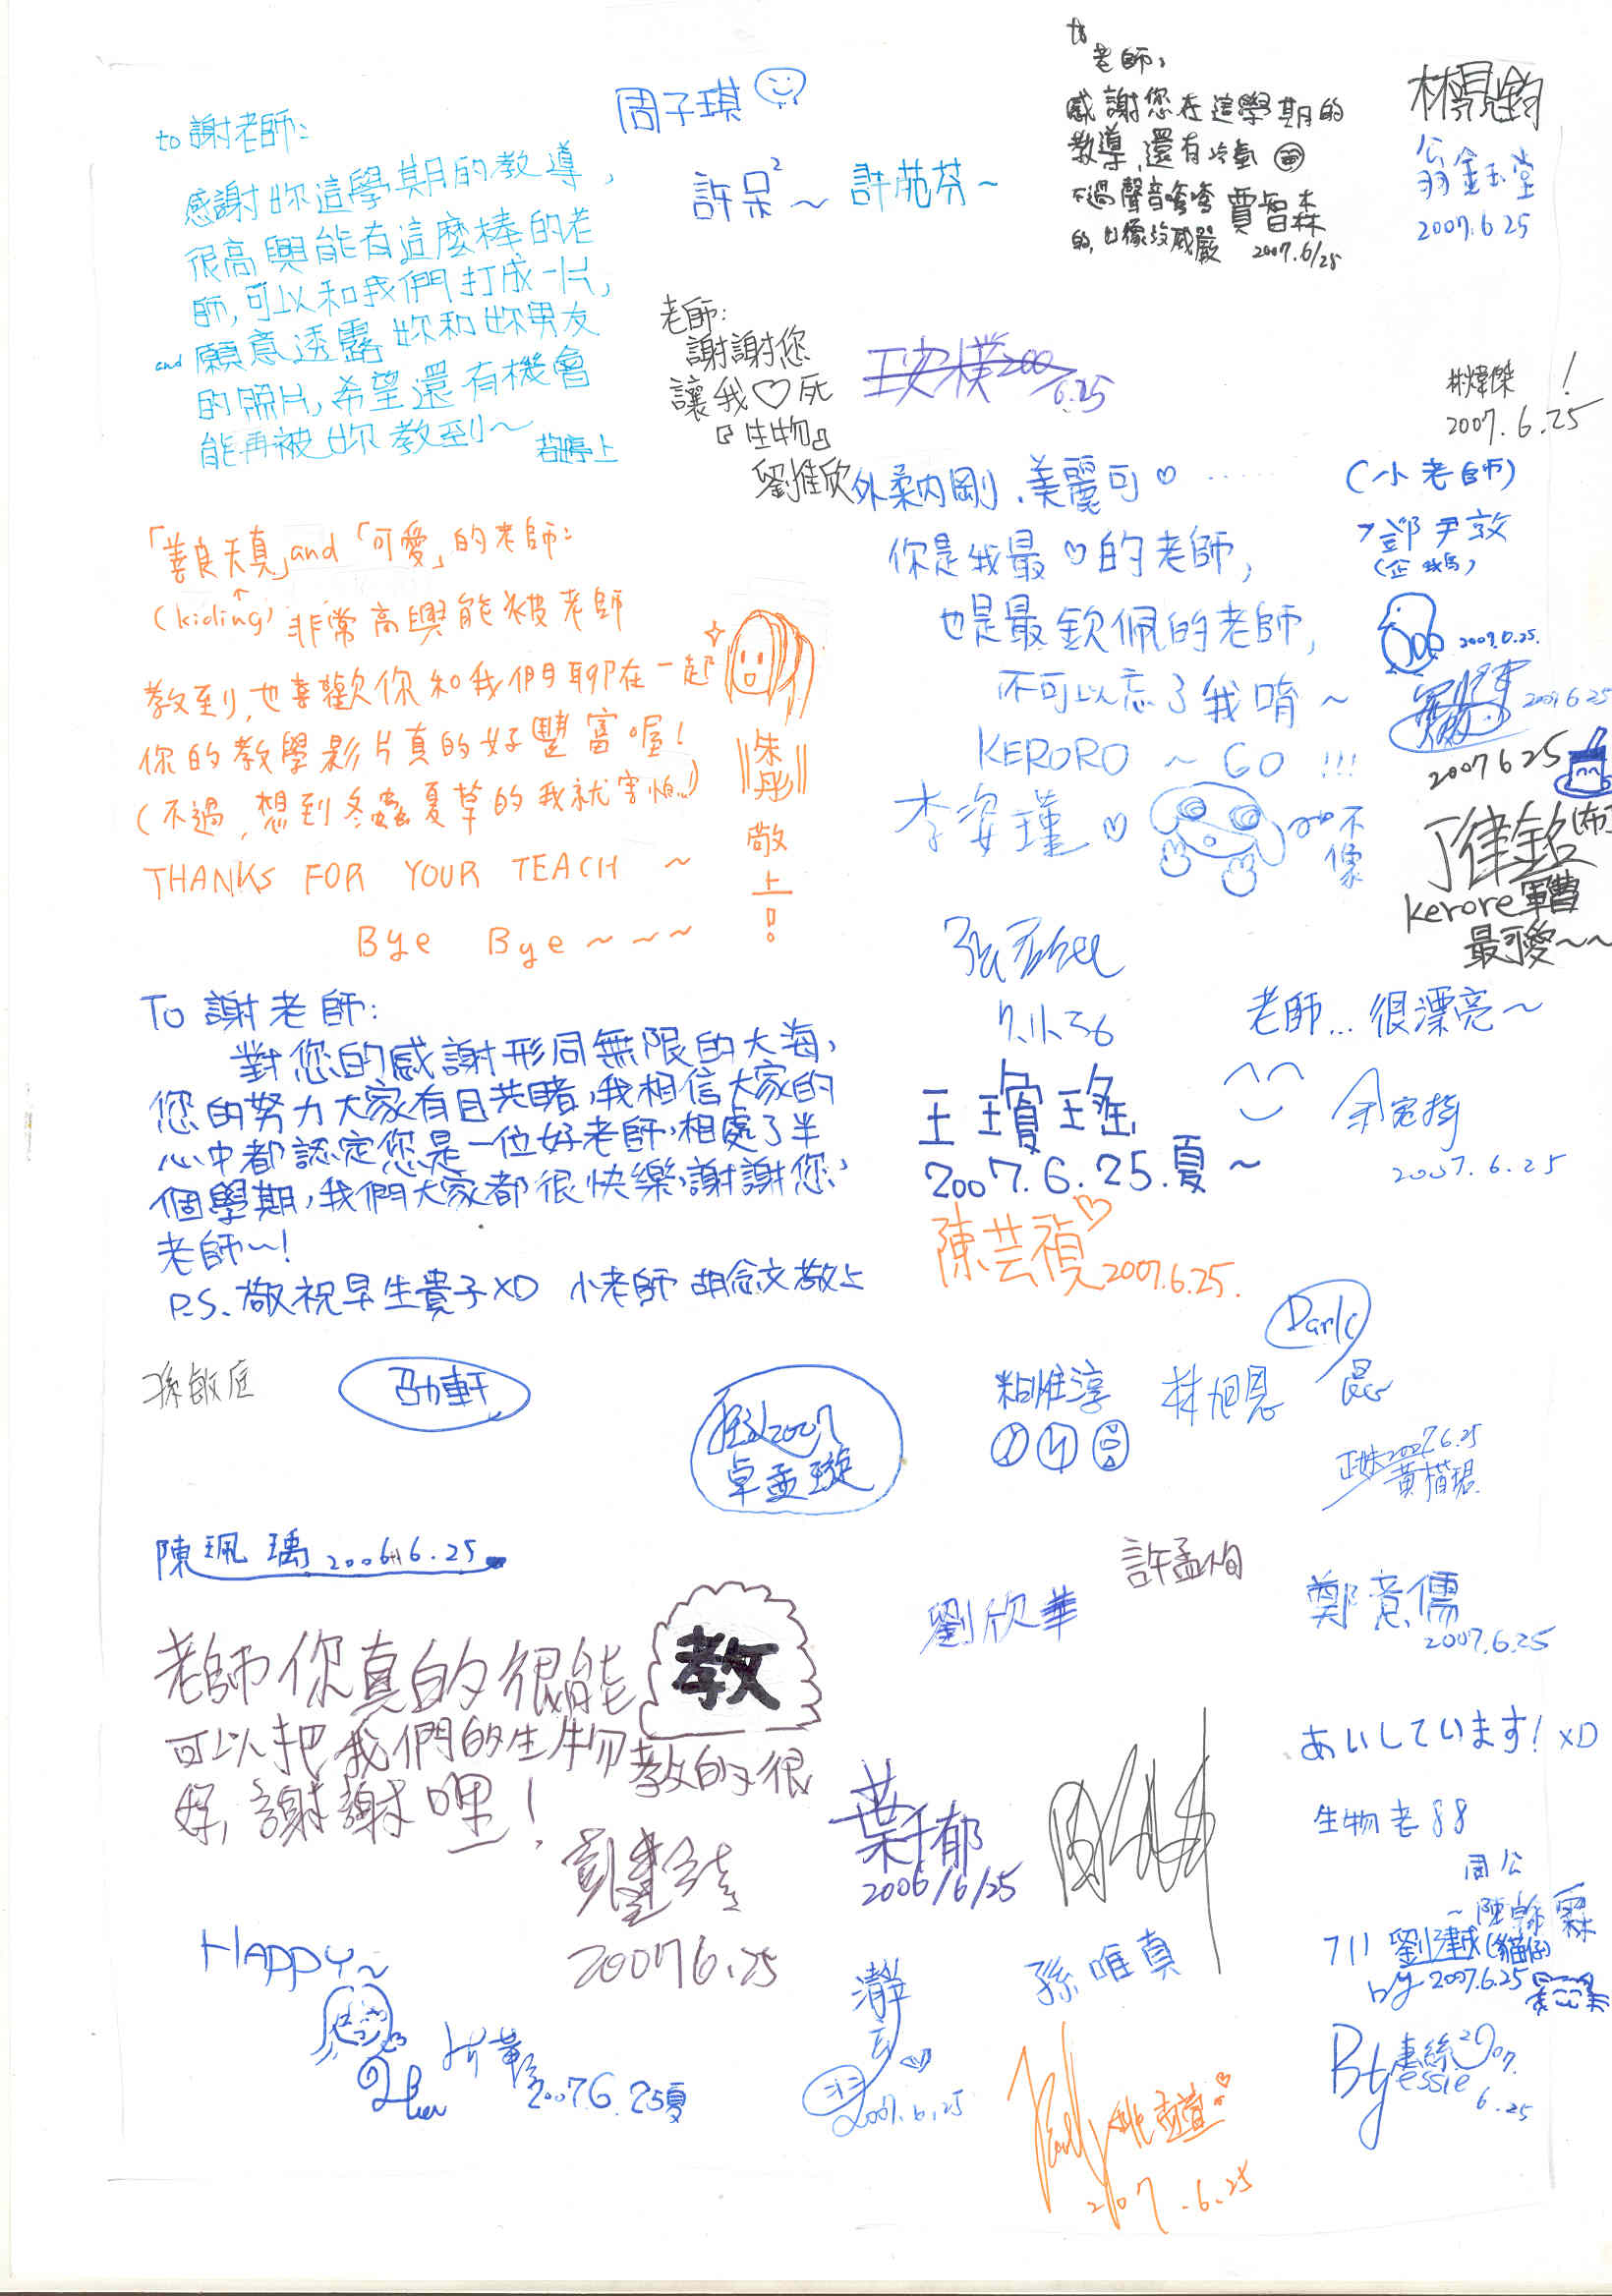 to 謝老師:
感謝妳這學期的教導,
很高興能有這麼棒的老
師,可以和我們打成一片,
and 願意透露妳和妳男友
的照片,希望還有機會
能再被妳教到~
上
周子琪
許呆2~ 許苑芬~
to
老師,
感謝您在這學期的
教導,還有冷氣
不過聲音嗲嗲
的,好像沒威嚴
賈智森
2007.6/25
公
翁鈺堂
2007.6.25
老師:
謝謝您
讓我♡死
『生物』
劉佳欣
6.25
林煒傑 !
2007.6.25
外柔內剛、美麗可♡……
你是我最♡的老師,
也是最欽佩的老師,
不可以忘了我唷~
KERORO ~ GO !!!
李姿瑾♡
不像
(小老師)
鄧尹敦
(企鵝)
2007.6.25.
2007.6.25
2007 6 25
丁律銘
kerore軍曹
最可愛~~
「善良天真」and「可愛」的老師:
(kiding) 非常高興能被老師
教到,也喜歡你和我們聊在一起
你的教學影片真的好豐富喔!
(不過,想到冬蟲夏草的我就害怕..!)
THANKS FOR YOUR TEACH ~
Bye Bye~~~
朱彤 敬上!
To 謝老師:
對您的感謝形同無限的大海,
您的努力大家有目共睹,我相信大家的
心中都認定您是一位好老師,相處了半
個學期,我們大家都很快樂,謝謝您,
老師~!
P.S. 敬祝早生貴子XD 小老師 胡念文敬上
老師…很漂亮~
2007.6.25
王瓊瑤
2007.6.25.夏~
陳芸禎♡2007.6.25.
孫敏庭
劭軒
2007
卓孟璇
粘惟淳
林旭恩
Dark
2007.6.25
黃楷珺
陳珮瑀 2006+1 6.25
許孟恂
劉欣華
鄭意儒
2007.6.25
老師你真的很能教
可以把我們的生物教的很
好,謝謝哩!
2007 6.25
葉千郁
2006/6/25
あいしています! XD
生物老88
周公
~陳翰霖
711 劉建誠(貓仔)
by 2007.6.25
HAPPY~
2007.6.25夏
2007.6.25
孫唯真
2007.6.25
By 惠絲 2007.
essie 6.25